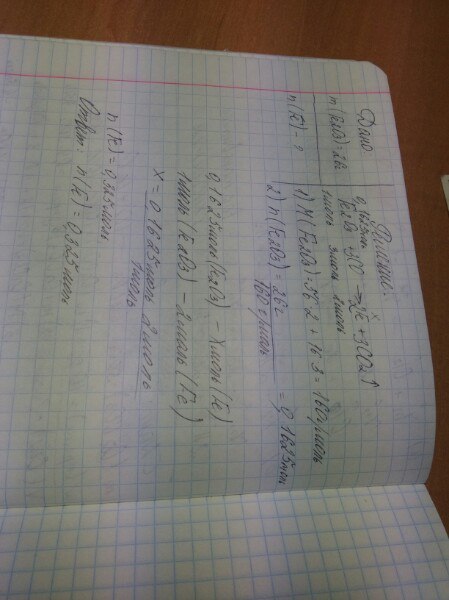 Дано:
m(Fe2O3)=26г
n(Fe) - ?
Решение.
0,1625моль x
Fe2O3 + 3CO → 2Fe + 3CO2↑
1моль 3моль 2моль
1) M(Fe2O3)=56·2+16·3=160г/моль
2) n(Fe2O3) = 26г
160г/моль = 0,1625моль
0,1625моль(Fe2O3) - xмоль(Fe)
1моль(Fe2O3) - 2моль(Fe)
x = 0,1625моль · 2моль
1моль
n(Fe) = 0,325моль
Ответ: n(Fe) = 0,325моль